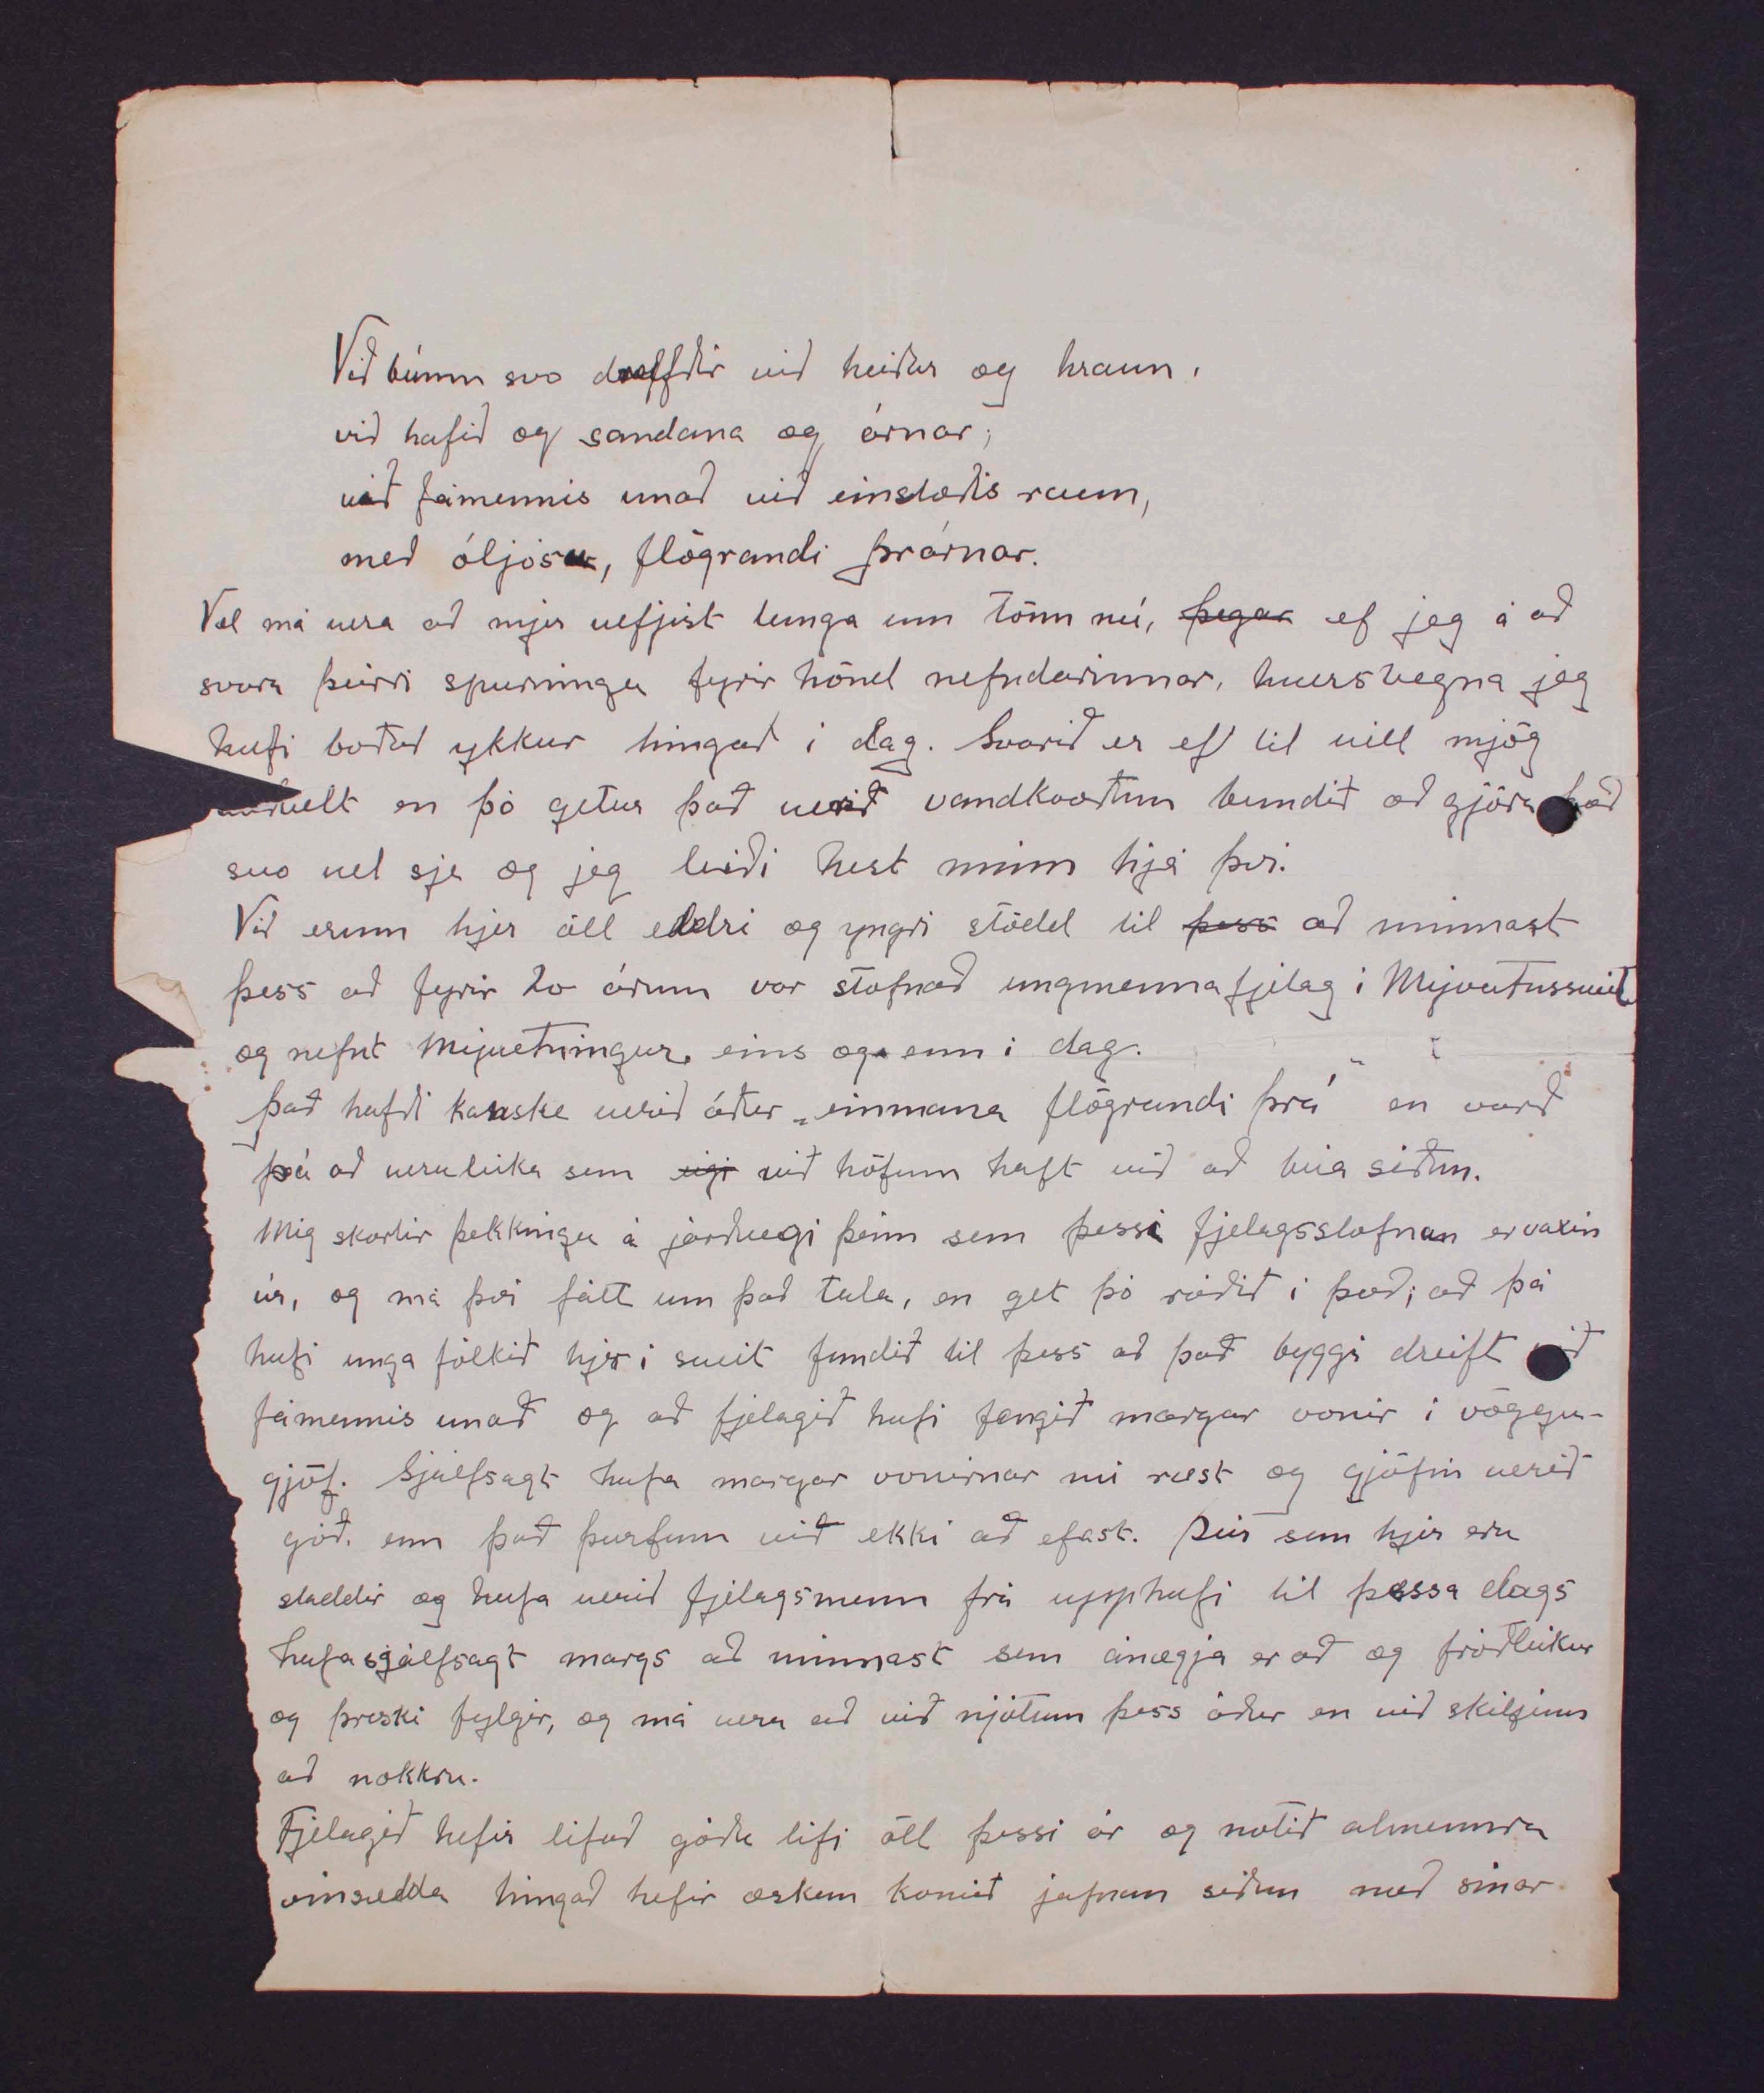 Við búum svo dreifðir við heiðar og hraun,
við hafið og sandana og árnar;
við fámennis unað við einstæðis raun,
með óljósu, flögrandi þrárnar.
Vel má vera að mjer vefjist tunga um tönn nú, þegar ef jeg á að
svara þeirri spurningu fyrir hönd nefndarinnar, hversvegna jeg
hafi boðað ykkur hingað í dag. Svarið er ef til vill mjög
auðvelt en þó getur það verið vandkvæðum bundið að gjöra það
svo vel sje og jeg leiði hest minn hjá því.
Við erum hjer öll eldri og yngri stödd til þess að minnast
þess að fyrir 20 árum var stofnað ungmennafjelag í Mývatnssveit
og nefnt Mývetningur, eins og enn í dag.
Það hafði kanske verið áður „einmana flögrandi þrá" en varð
þá að veruleika sem eigi við höfum haft við að búa síðan.
Mig skortir þekkingu á jarðvegi þeim sem þessi fjelagsstofnun er vaxin
úr, og má því fátt um það tala, en get þó ráðið í það; að þá
hafi unga fólkið hjer í sveit fundið til þess að það byggi dreift við
fámennis unað og að fjelagið hafi fengið margar vonir í vöggu-
gjöf. Sjálfsagt hafa margar vonirnar nú ræst og gjöfin verið
góð, um það þurfum við ekki að efast. Þeir sem hjer eru
staddir og hafa verið fjelagsmenn frá upphafi til þessa dags
hafa sjálfsagt margs að minnast sem ánægja er að og fróðleikur
og þroski fylgir, og má vera að við njótum þess áður en við skiljum
að nokkru.
Fjelagið hefir lifað góðu lífi öll þessi ár og notið almennra
vinsælda hingað hefir æskan komið jafnan síðan með sínar